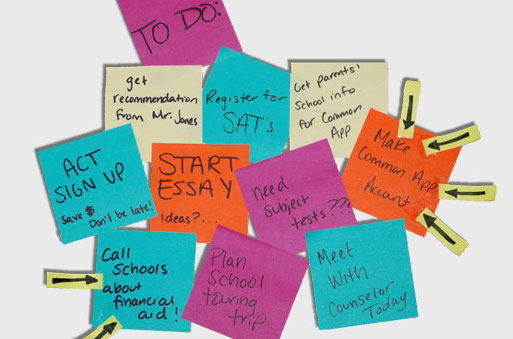 TO DO:
get
recommendation
from Mr. Jones
Register for
SAT's
Get parents'
School info
for Common
App
ACT
SIGN UP
save $
Don't be late!
START
ESSAY
ideas?...
need
subject
tests???
Make
Common App
Account
Call
Schools
about
financial
aid!
Plan
School
touring
trip
Meet
With
Counselor
Today